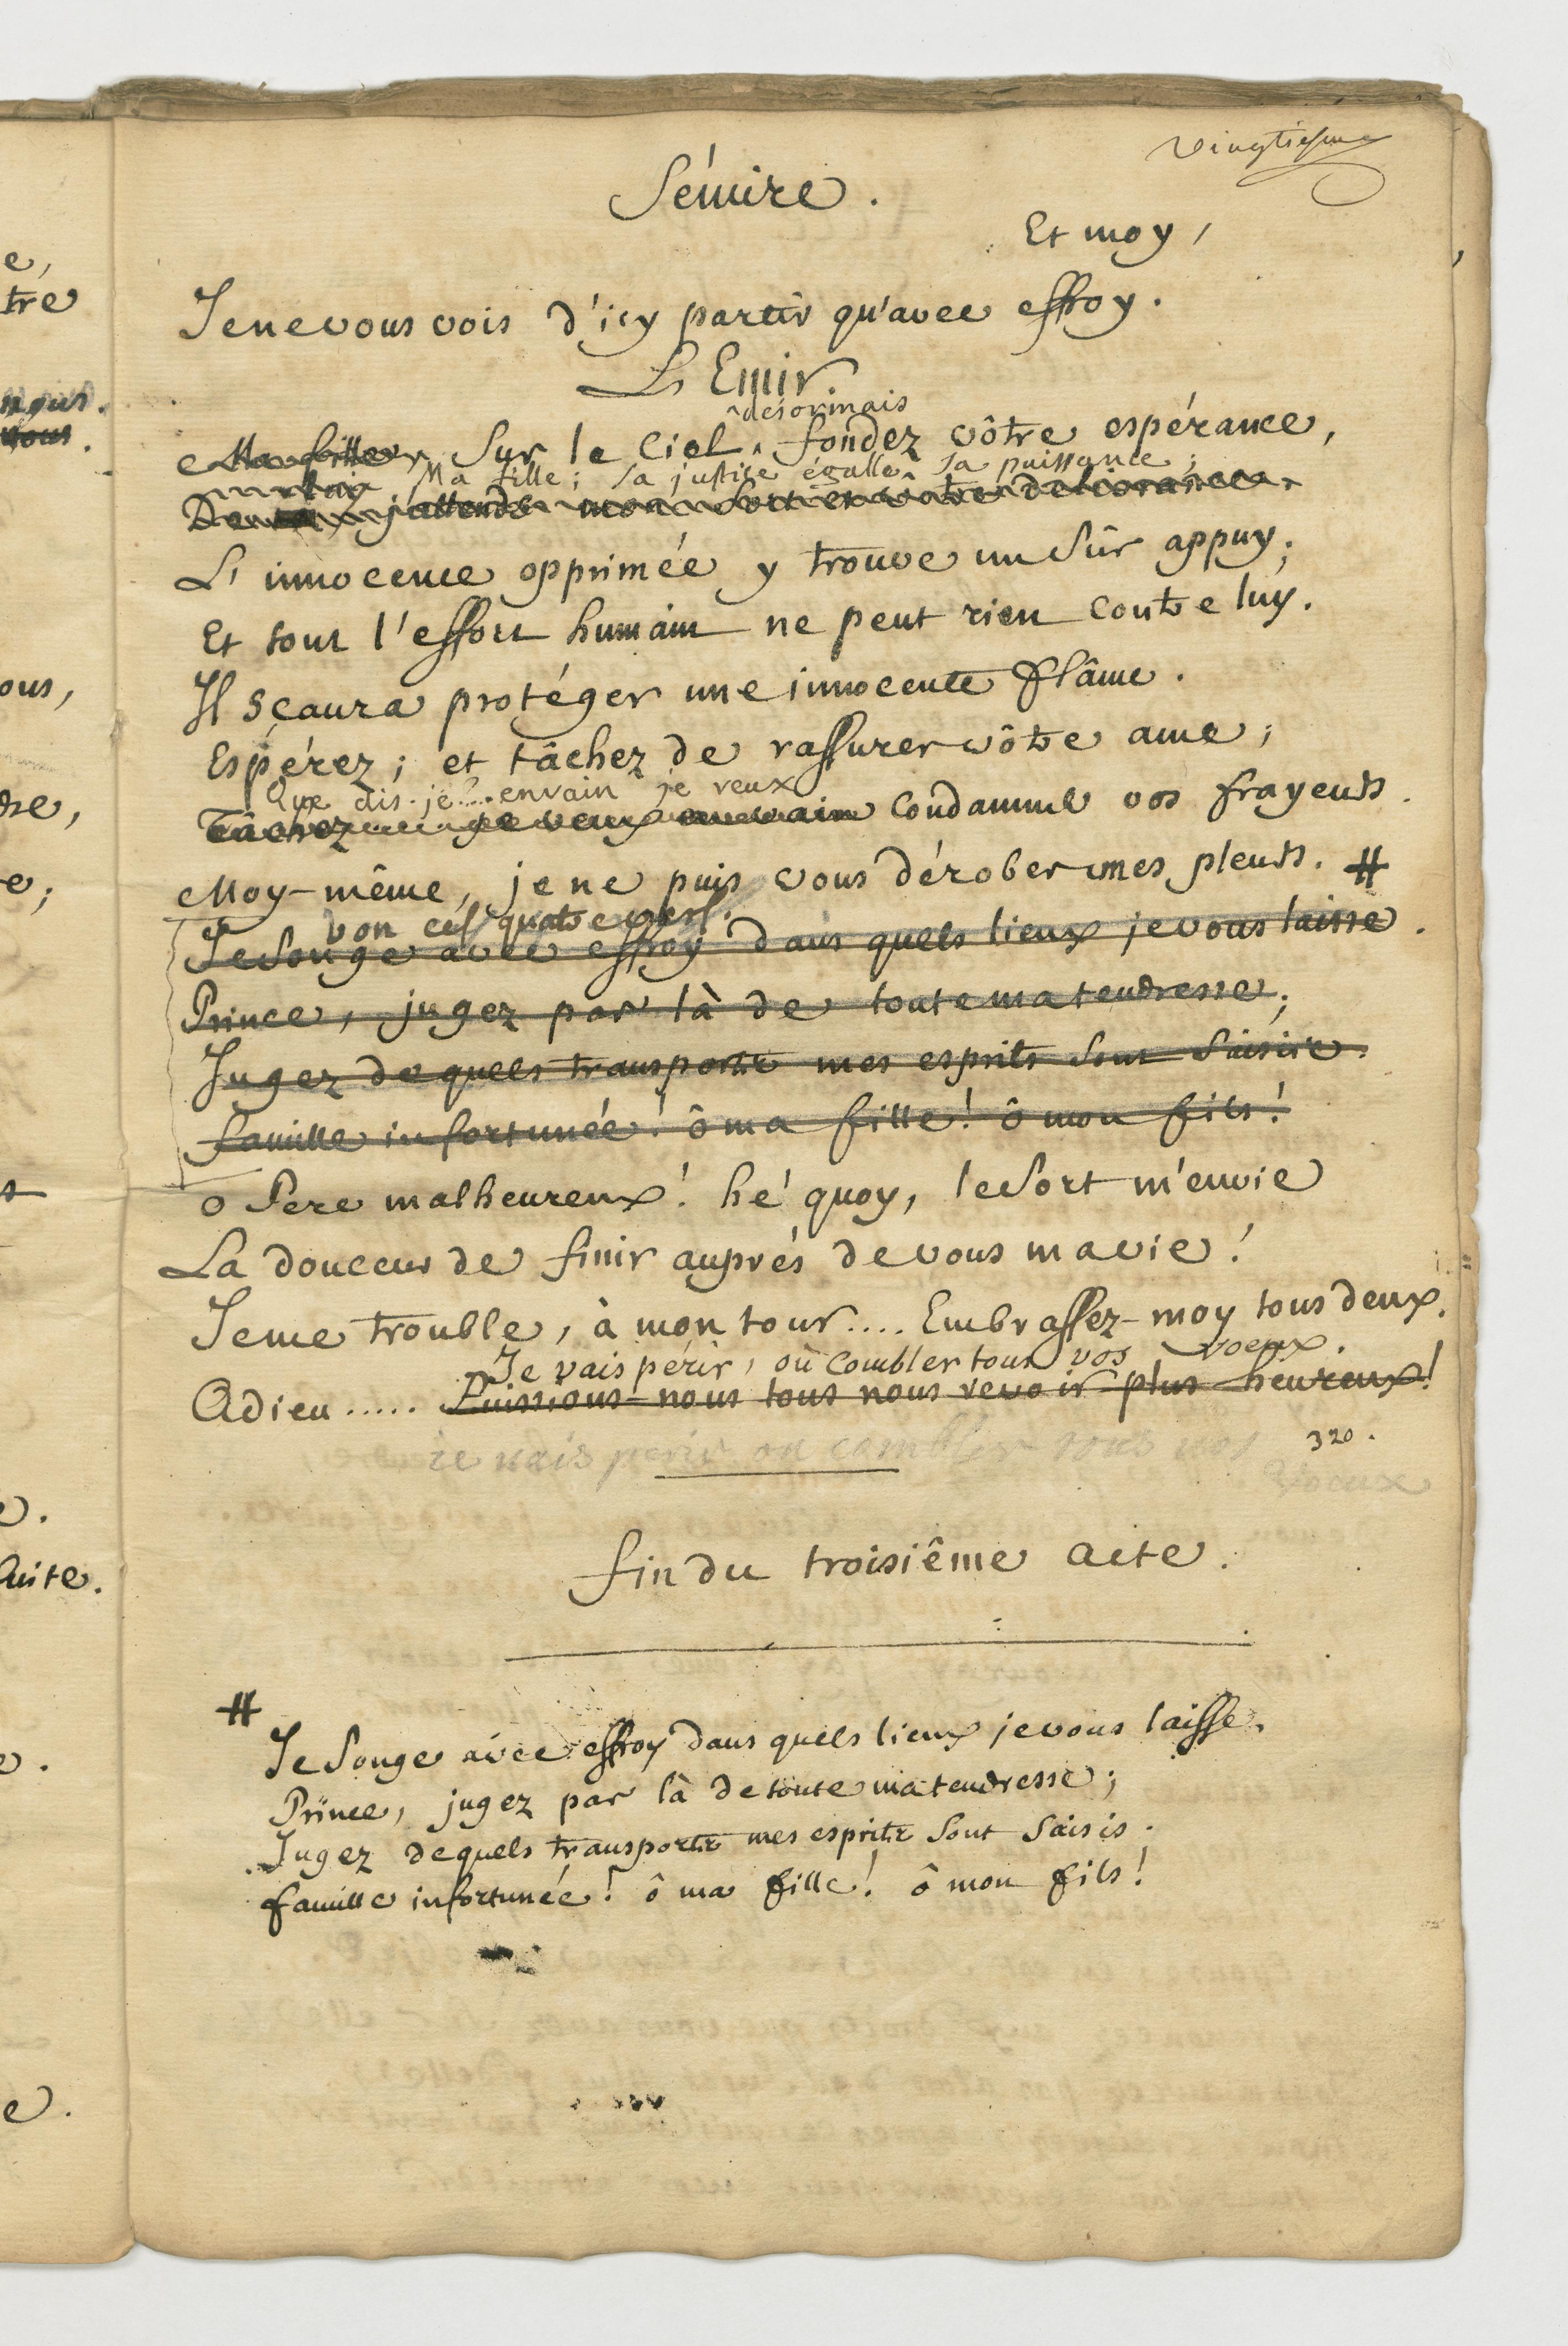 vingtiesme
Sémire.
Et moy,
Je ne vous vois d'icy partir qu'avec effroy.
L'Emir.
désormais
Ma fille, Sur le Ciel fondez vôtre espérance,
Ma fille; sa justice égalle sa puissance;
De luy j'attends mon sort et vôtre délivrance.
L'innocence opprimée y trouve un sûr appuy;
Et tout l'effort humain ne peut rien contre luy.
Il sçaura protéger une innocente flâme.
Espérez; et tâchez de rassurer vôtre ame;
Que dis-je?... envain je veux
Tâchez je veux envain Condamner vos frayeurs.
Moy-même, je ne puis vous dérober mes pleurs. #
bon ces quatre vers.
Je songe avec effroy dans quels lieux je vous laisse.
Prince, jugez par là de toute ma tendresse;
Jugez de quels transports mes esprits sont saisis.
famille infortunée! ô ma fille! ô mon fils!
o Pere malheureux! hé quoy, le sort m'envie
La douceur de finir auprés de vous ma vie!
Je me trouble, à mon tour.... Embrassez-moy tous deux.
Je vais périr, ou combler tous vos voeux.
Adieu..... Puissions-nous tous nous revoir plus heureux!
je vais perir ou combler tous vos
voeux
320.
fin du troisiême acte.
#
Je songe avec effroy dans quels lieux je vous laisse.
Prince, jugez par là de toute ma tendresse;
Jugez de quels transports mes esprits sont saisis.
famille infortunée! ô ma fille! ô mon fils!